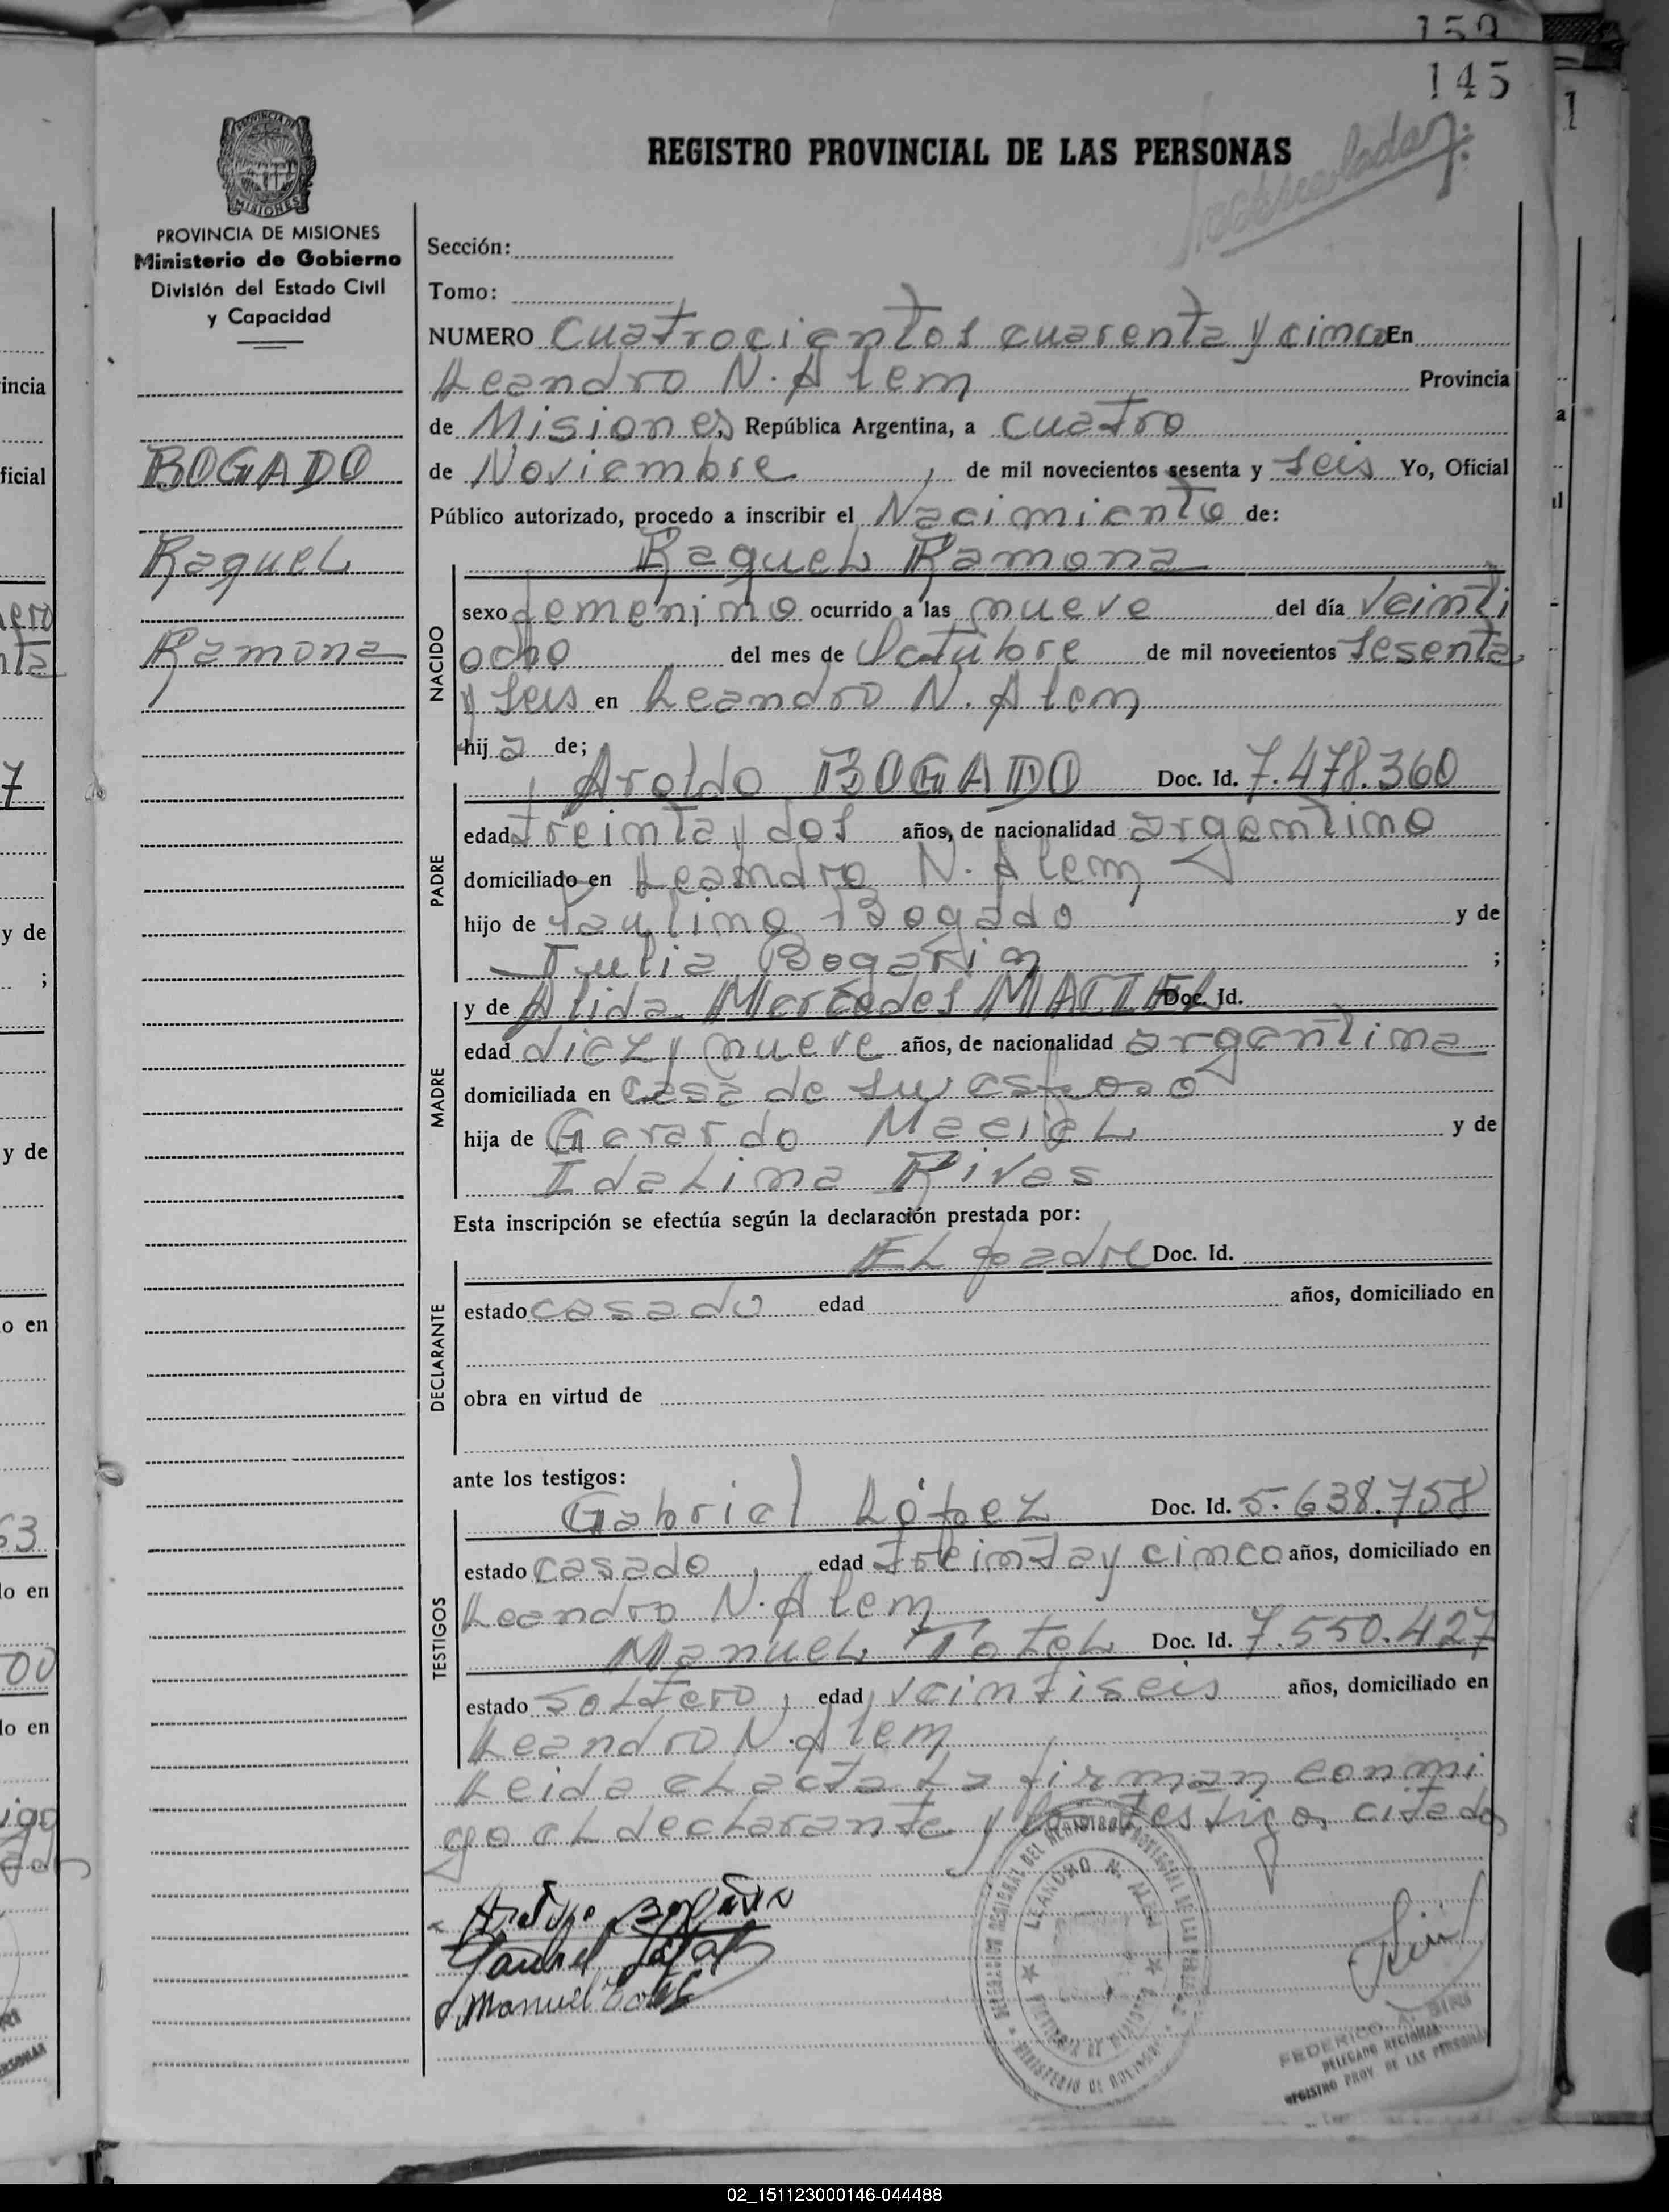 159
145
1
PROVINCIA DE
MISIONES
PROVINCIA DE MISIONES
Ministerio de Gobierno
División del Estado Civil
y Capacidad
BOGADO
Raquel
Ramona
REGISTRO PROVINCIAL DE LAS PERSONAS
Sección:
Tomo:
NUMERO Cuatrocientos cuarenta y cinco En
Leandro N. Alem Provincia
de Misiones, República Argentina, a cuatro
de Noviembre, de mil novecientos sesenta y seis Yo, Oficial
Público autorizado, procedo a inscribir el Nacimiento de:
Raquel Ramona
NACIDO
sexo femenino ocurrido a las nueve del día veinti
ocho del mes de Octubre de mil novecientos sesenta
y seis en Leandro N. Alem
hija de;
PADRE
Aroldo BOGADO Doc. Id. 7.478.360
edad treinta y dos años, de nacionalidad argentino
domiciliado en Leandro N. Alem
hijo de Paulino Bogado y de
Julia Bogarin ;
MADRE
y de Alida Mercedes MACIEL Doc. Id.
edad diez y nueve años, de nacionalidad argentina
domiciliada en casa de su esposo
hija de Gerardo Maciel y de
Idalina Rivas
Esta inscripción se efectúa según la declaración prestada por:
DECLARANTE
El padre Doc. Id.
estado casado edad años, domiciliado en
obra en virtud de
ante los testigos:
TESTIGOS
Gabriel López Doc. Id. 5.638.758
estado casado, edad treinta y cinco años, domiciliado en
Leandro N. Alem
Manuel Totel Doc. Id. 7.550.427
estado soltero, edad, veintiseis años, domiciliado en
Leandro N. Alem
Leida el acta la firman conmi
go el declarante y los testigos citados
Manuel
LEANDRO N. ALEM
PROVINCIA DE MISIONES
MINISTERIO DE GOBIERNO
FEDERICO A. SIRI
DELEGADO REGIONAL
REGISTRO PROV. DE LAS PERSONAS
incia
ficial
7
y de
;
y de
o en
63
lo en
00
lo en
02_151123000146-044488